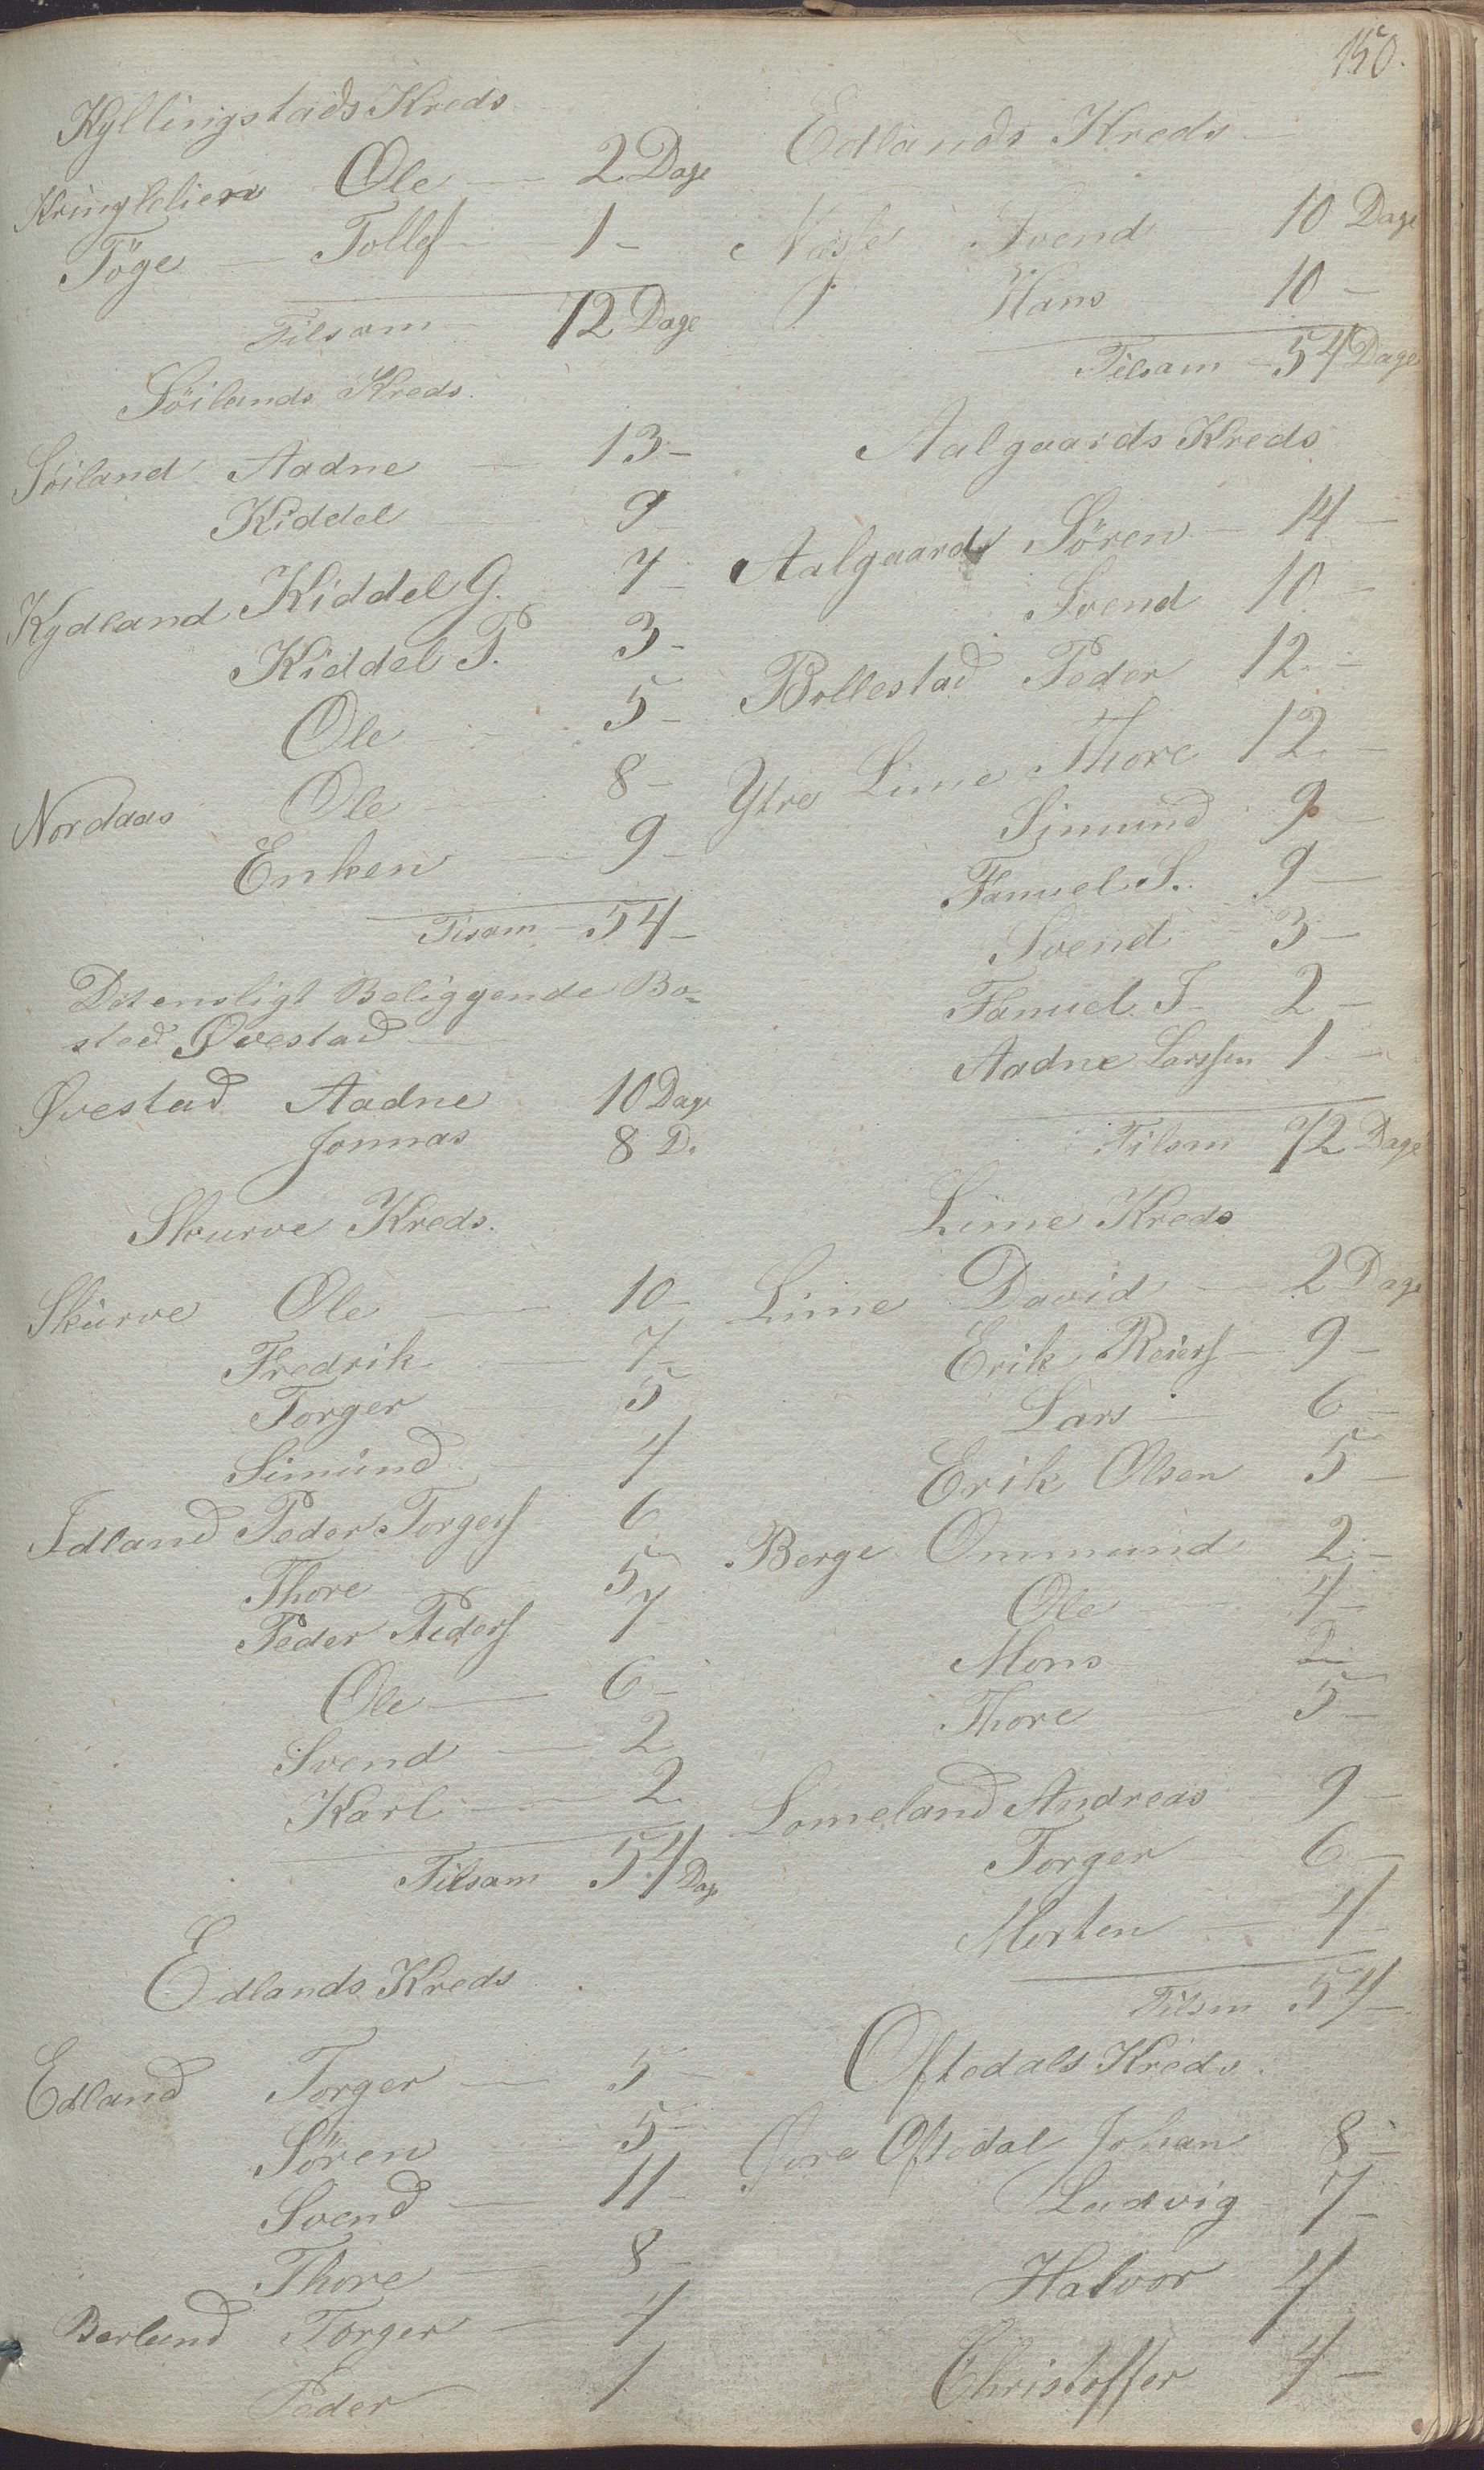 150.
Kyllingstads Kreds
Kringlelien Ole — 2 Dage
Töge — Tollef — 1 –
Tilsam — 72 Dage
Söilands Kreds.
Söiland Aadne — 13 –
Kiddel — 9 –
Kydland Kiddel G. 7 –
Kiddel P. 3 –
Ole — 5 –
Nordaas Ole — 8 –
Enken — 9 –
Tisam – 54 –
Det ensligt Beliggende Bo-
sted Øvestad —
Øvestad Aadne 10 Dage
Jonnas 8 D.
Skurve Kreds.
Skurve Ole — 10 –
Fredrik — 7 –
Torger 5
Simund — 4
Idland Peder Torgers 6
Thore 5
Peder Peders 7
Ole — 6 –
Svend — 2
Karl — 2
Tilsam 54 Dag
Edlands Kreds
Edland Torger — 5 –
Sören 5 –
Svend — 11 –
Thore — 8 –
Berland Torger — 4
Peder 1
Edlands Kreds —
Svend — 10 Dage
Hans 10 –
Tilsam – 54 Dage
Aalgaards Kreds
Aalgaard Sören — 14 –
Svend 10 –
Bollestad Peder 12 –
Ytre Lime Thore 12 –
Simund 9 –
Samuel S. 9 –
Svend 3 –
Samuel T – 2 –
Aadne Larssen 1 –
Tilsam 72 Dage
Lime Kreds
Lime David — 2 Dage
Erik Reiers — 9 –
Lars — 6 –
Erik Olsen 5 –
Berge Ommund 2 –
Ole — 4 –
Mons 2
Thore — 5 –
Lomeland Andreas — 9 –
Torger — 6 –
Morten — 4 –
Tilsm 54 –
Oftedals Kreds.
Øvre Oftedal Johan 8 –
Ludvig – 7 –
Halvor 4
Christoffer 4 –